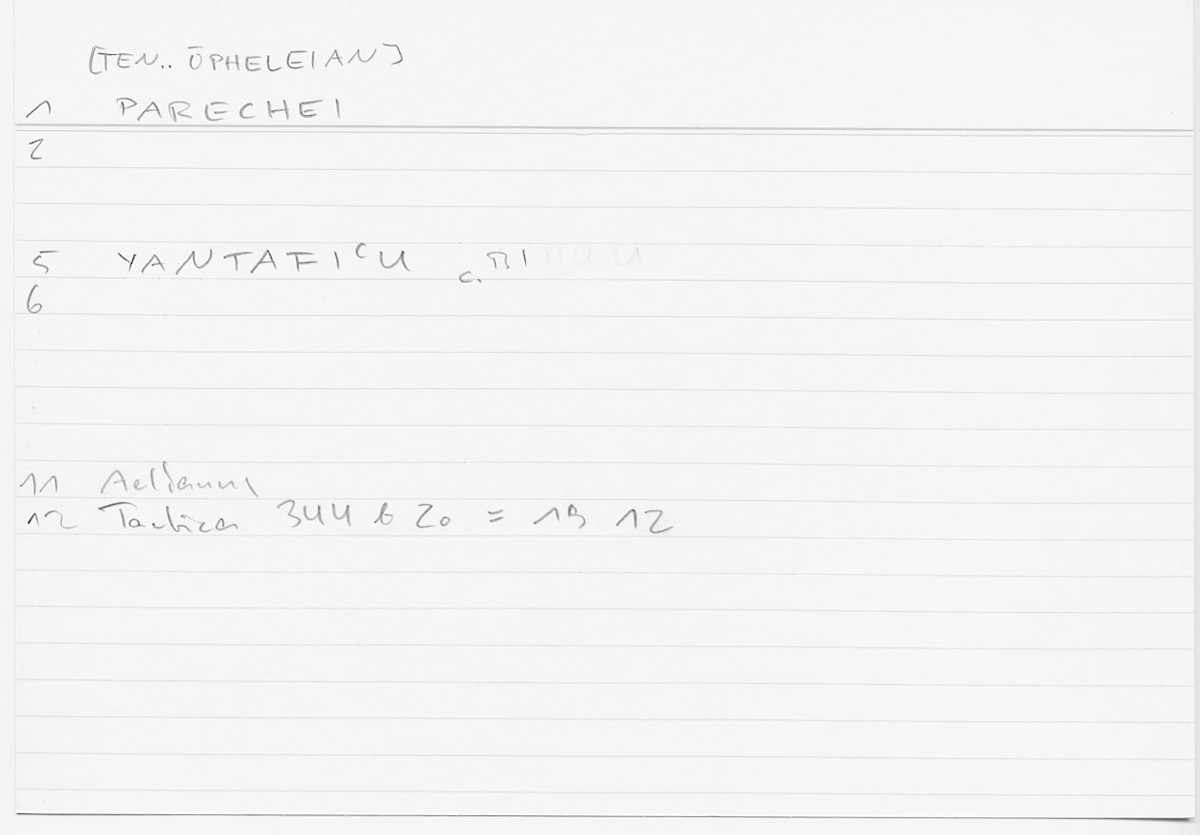 [TEN.. ŌPHELEIAN]
1 PARECHEI
2
5 YANTAFIᶜU c. BI
6
11 Aelianus
12 Tactica 344 b 20 = 19 12